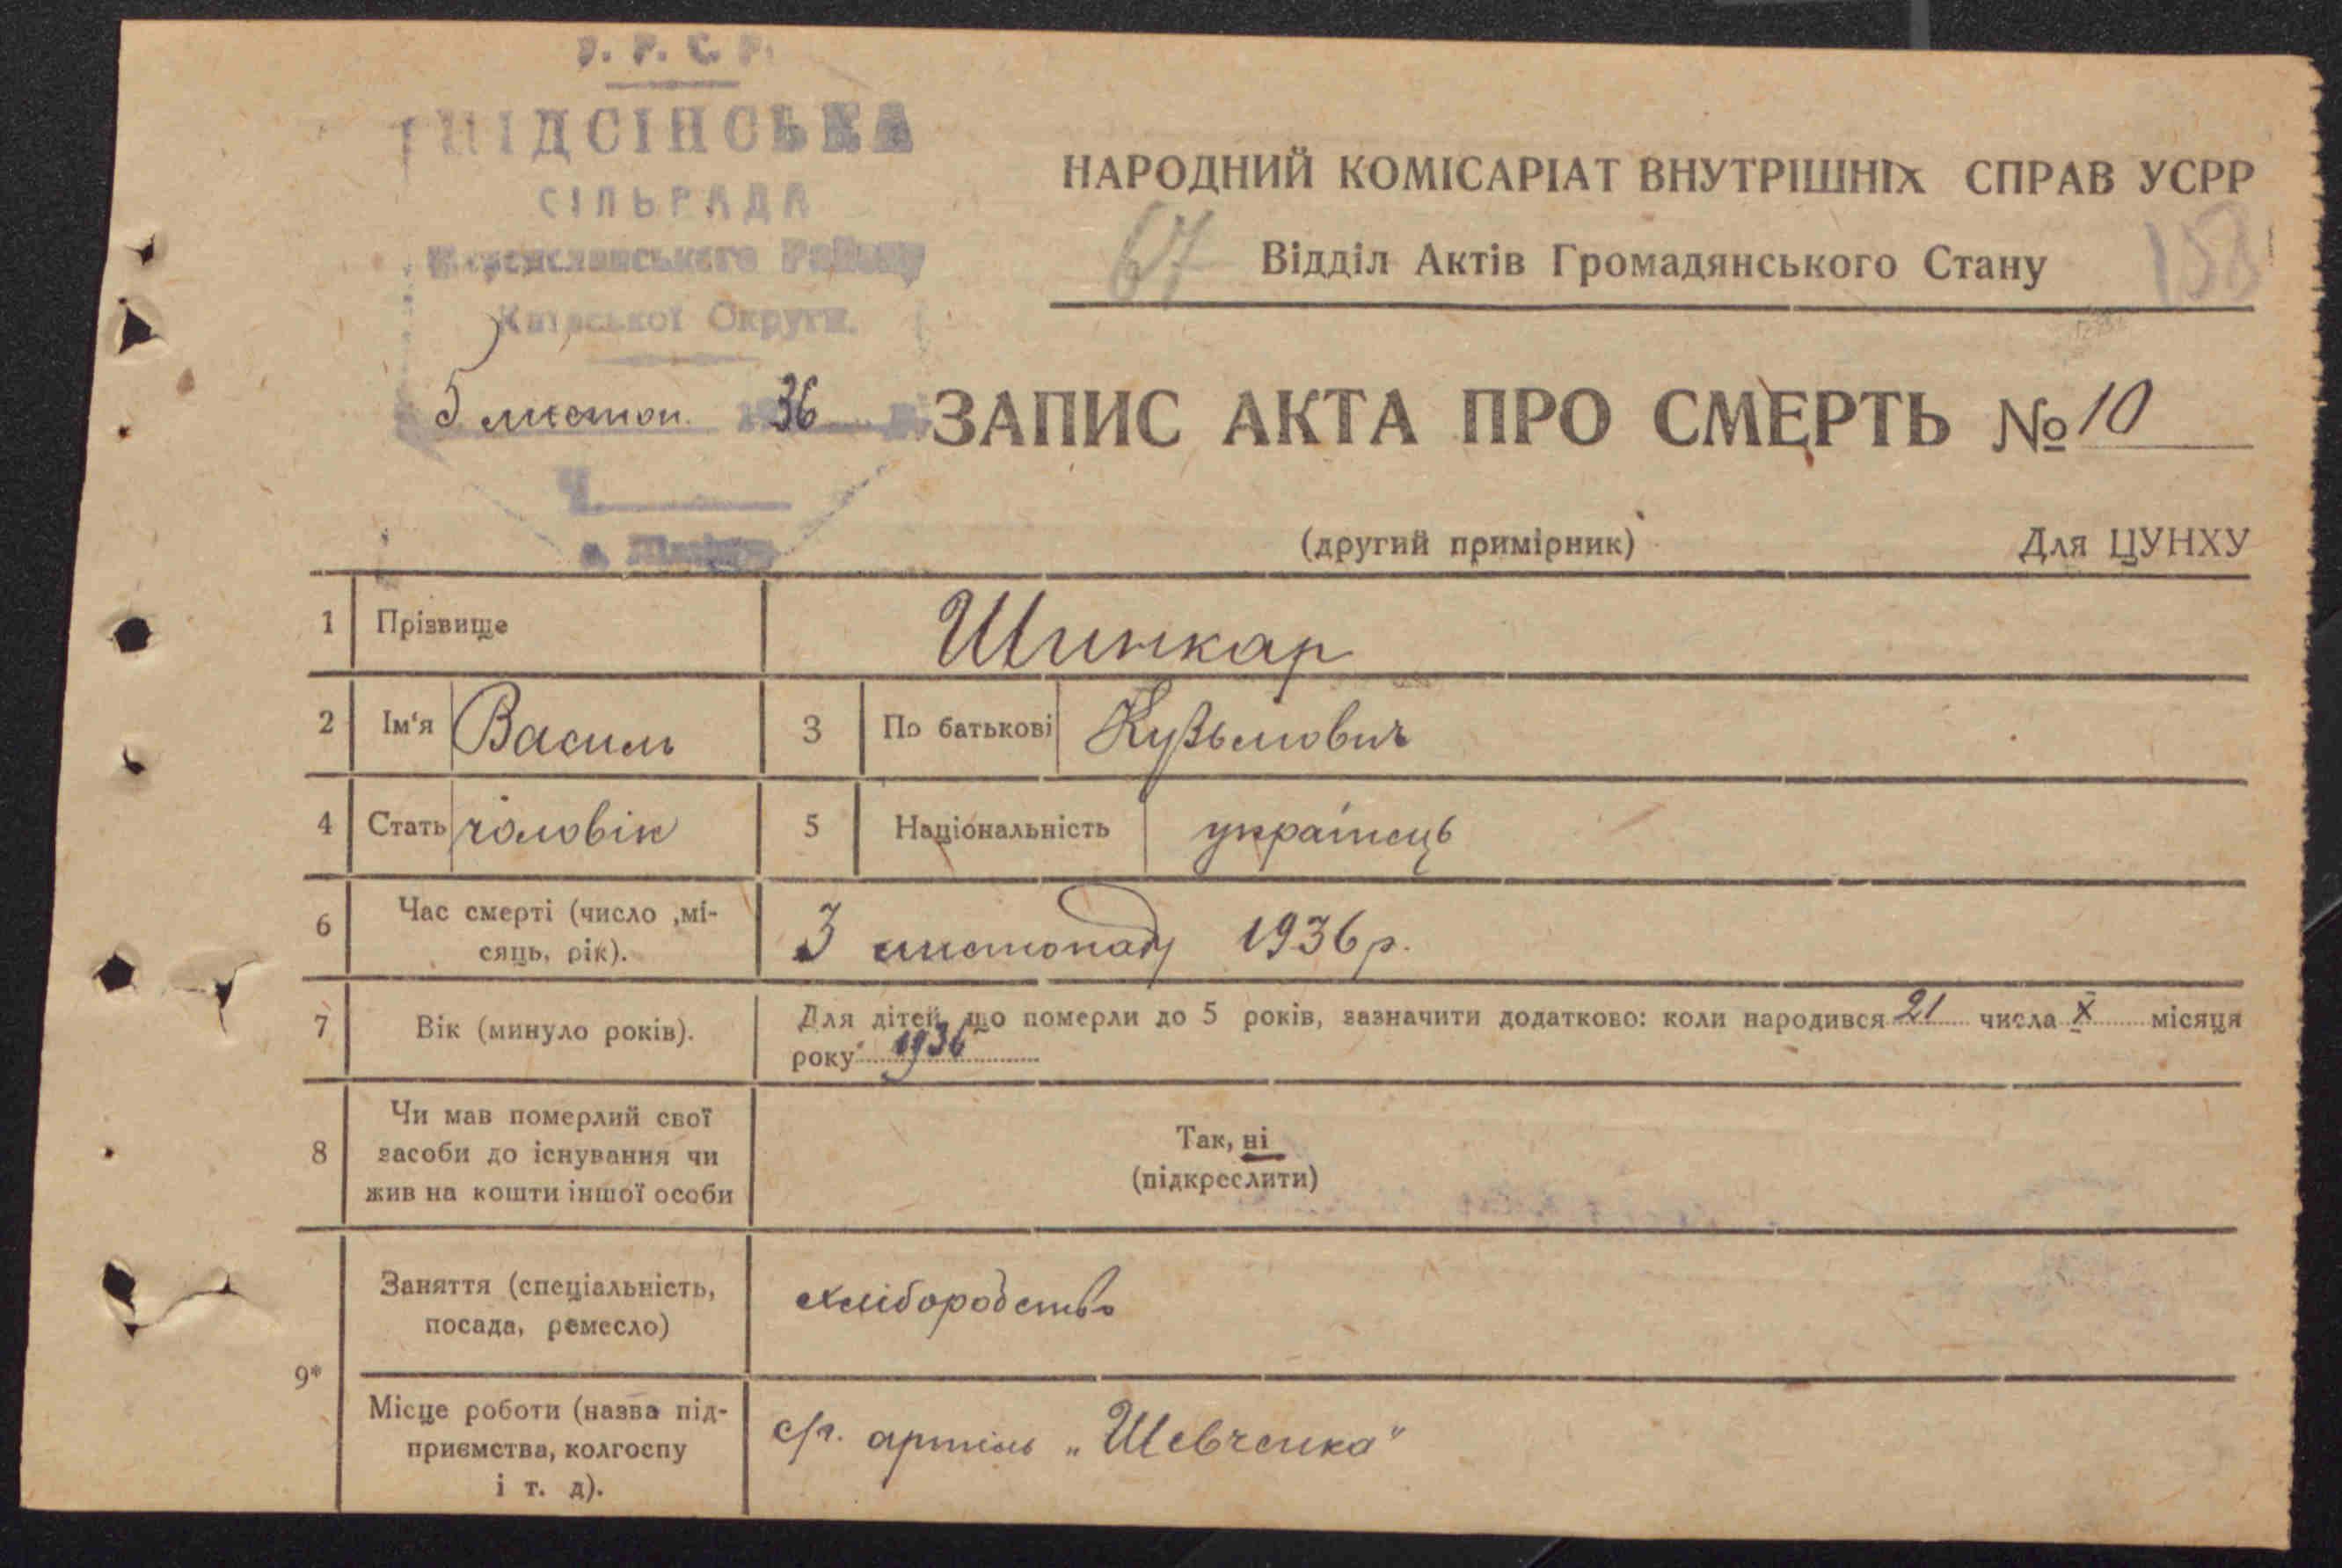 У. Р. С. Р.
ПІДСІНСЬКА
СІЛЬРАДА
Переяславського Району
Київської Округи.
5 листоп. 36
Ч.
НАРОДНИЙ КОМІСАРІАТ ВНУТРІШНІХ СПРАВ УСРР
67 Відділ Актів Громадянського Стану 158
ЗАПИС АКТА ПРО СМЕРТЬ № 10
(другий примірник) Для ЦУНХУ
1 Прізвище Шинкар
2 Ім‘я Василь 3 По батькові Кузьмович
4 Стать чоловік 5 Національність українець
6 Час смерті (число ,мі-
сяць, рік). 3 листопаду 1936 р.
7 Вік (минуло років). Для дітей що померли до 5 років, зазначити додатково: коли народився 21 числа X місяця
року 1936
8 Чи мав померлий свої
засоби до існування чи
жив на кошти іншої особи
Так, ні
(підкреслити)
9* Заняття (спеціальність,
посада, ремесло) хліборобство
Місце роботи (назва під-
приємства, колгоспу
і т. д).
с/г. артіль „Шевченка"